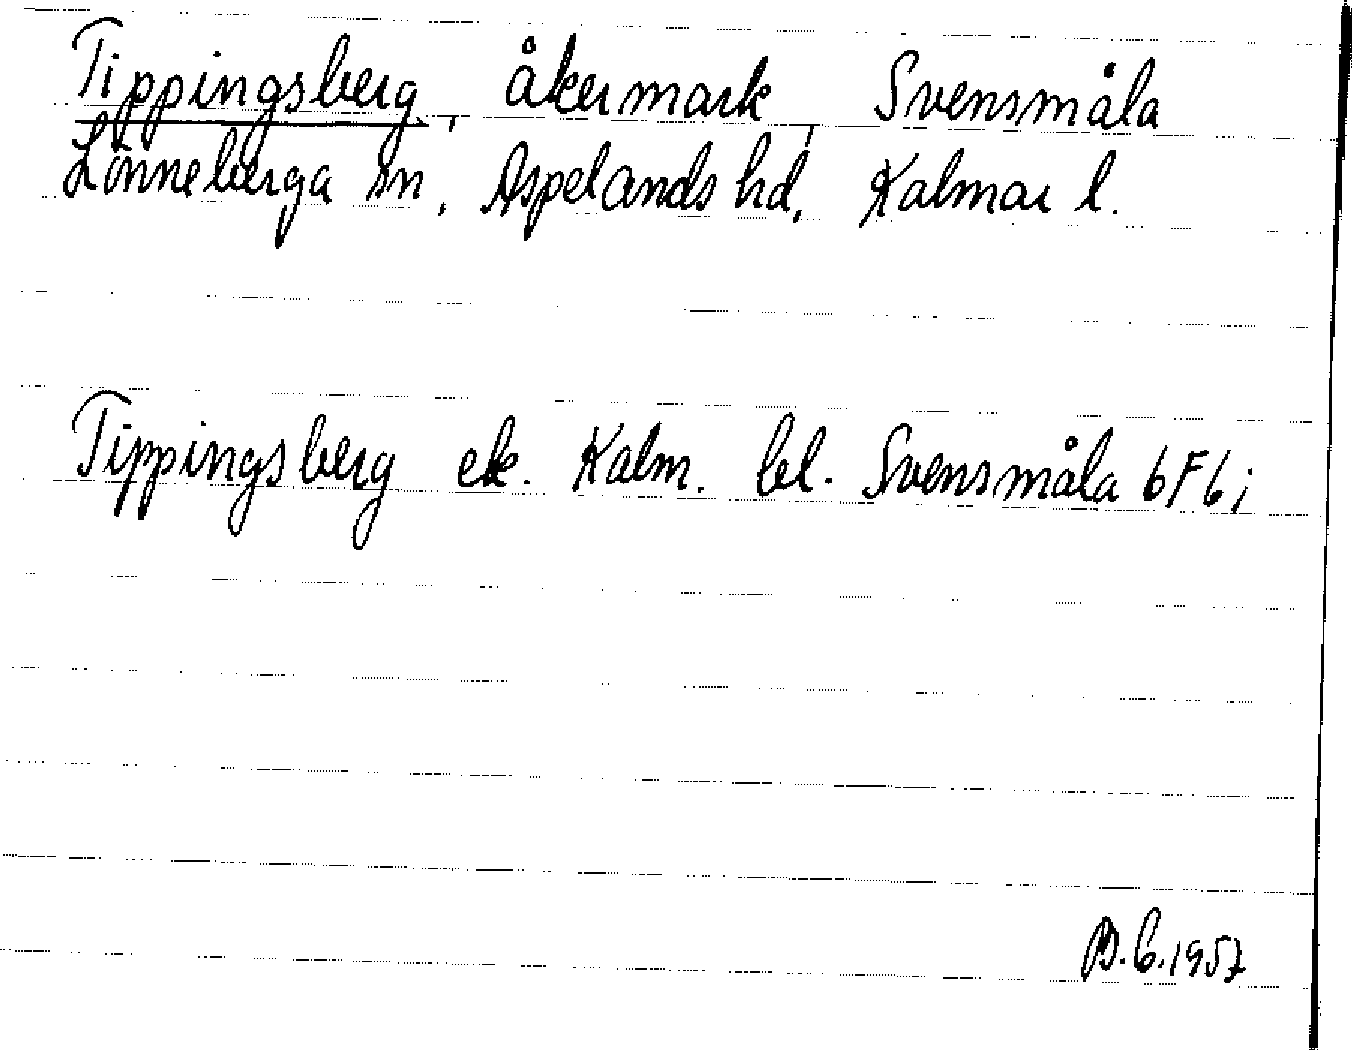 Tippingsberg, åkermark, Svensmåla
Lönneberga sn, Aspelands hd, Kalmar l.
Tippingsberg ek. Kalm. bl. Svensmåla 6F6i
B.C.1957